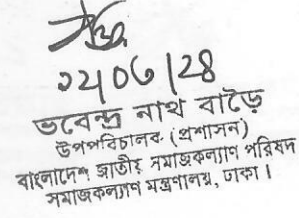 ১২/০৬/২৪
ভবেন্দ্র নাথ বাড়ৈ
উপপরিচালক (প্রশাসন)
বাংলাদেশ জাতীয় সমাজকল্যাণ পরিষদ
সমাজকল্যাণ মন্ত্রণালয়, ঢাকা।